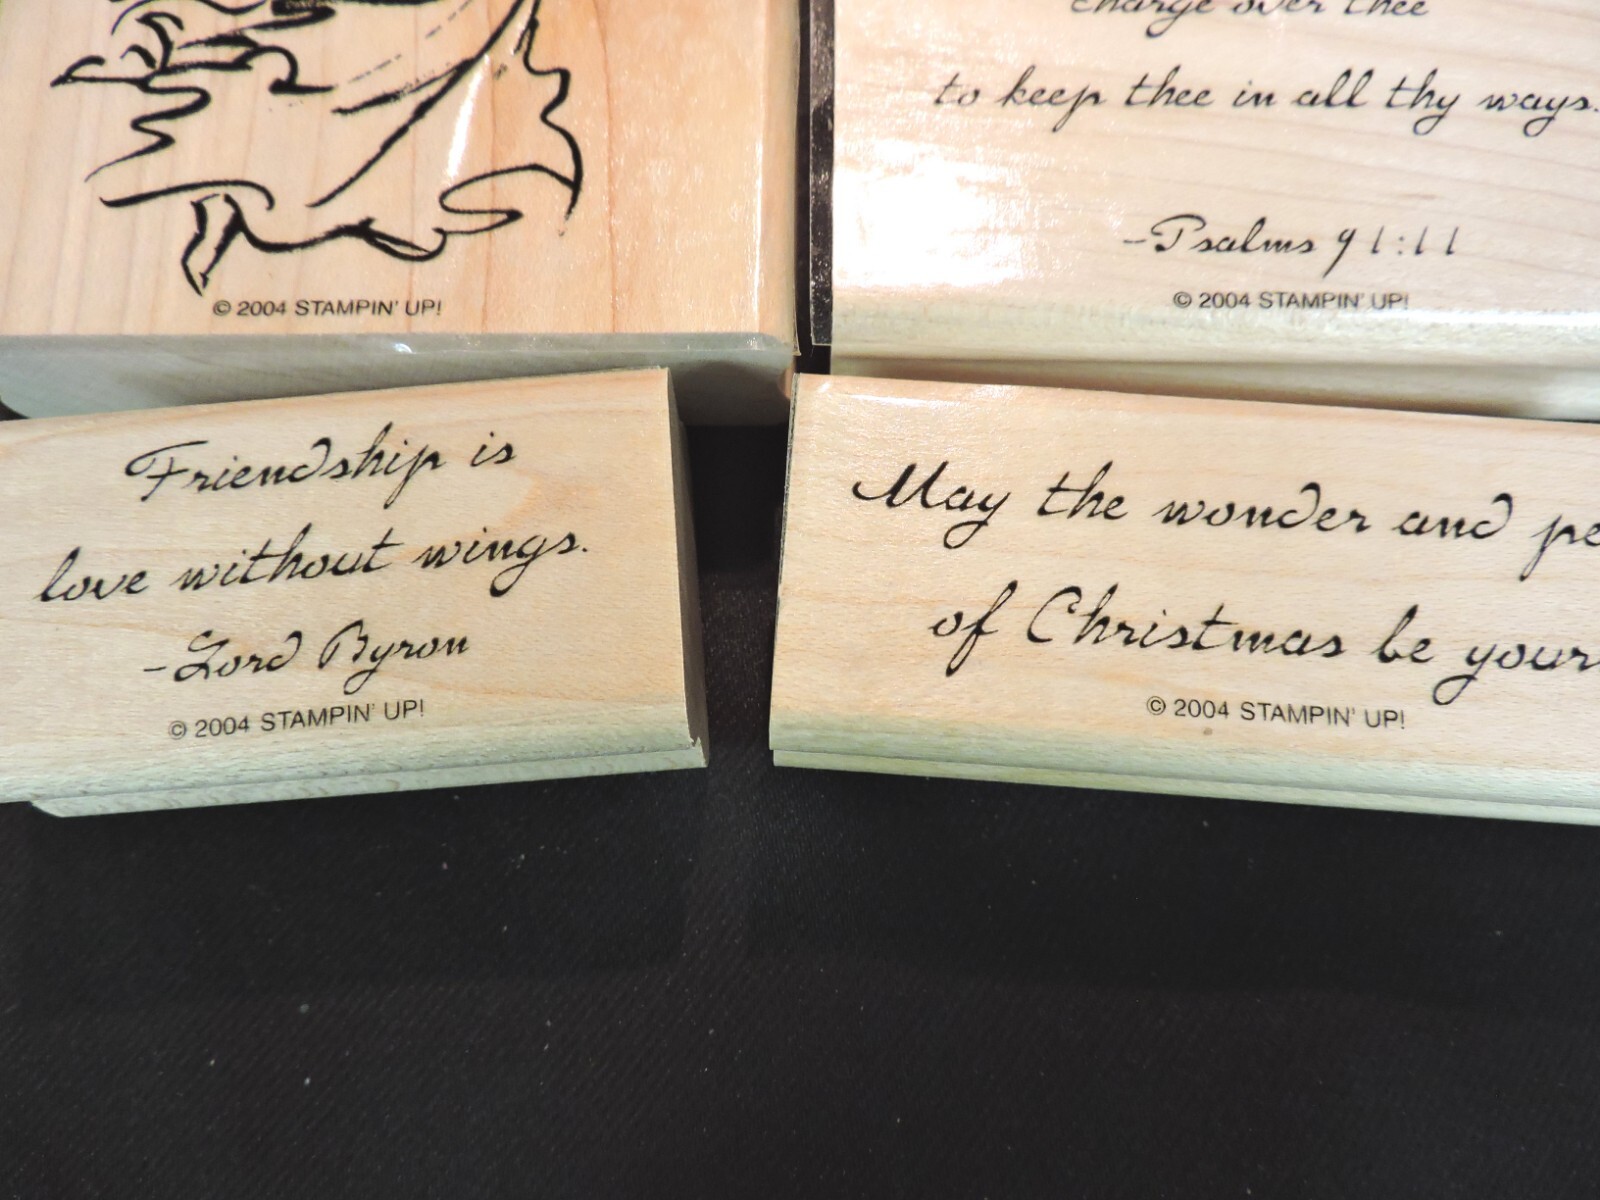 charge over thee
to keep thee in all thy ways.
-Psalms 91:11
© 2004 STAMPIN' UP!
© 2004 STAMPIN' UP!
Friendship is
love without wings.
-Lord Byron
© 2004 STAMPIN' UP!
May the wonder and pe
of Christmas be your
© 2004 STAMPIN' UP!